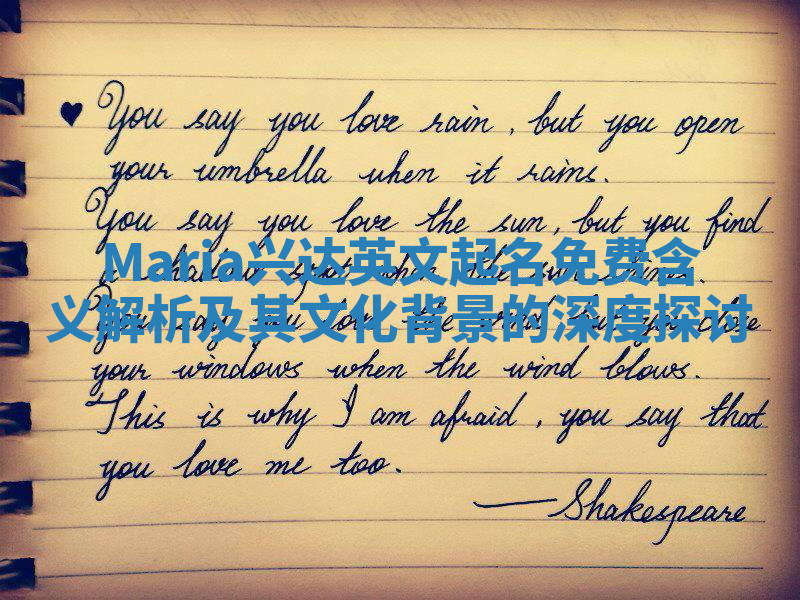 ♥ You say you love rain, but you open
your umbrella when it rains.
You say you love the sun, but you find
Maria兴达英文起名免费含
义解析及其文化背景的深度探讨
your windows when the wind blows.
This is why I am afraid, you say that
you love me too.
—Shakespeare